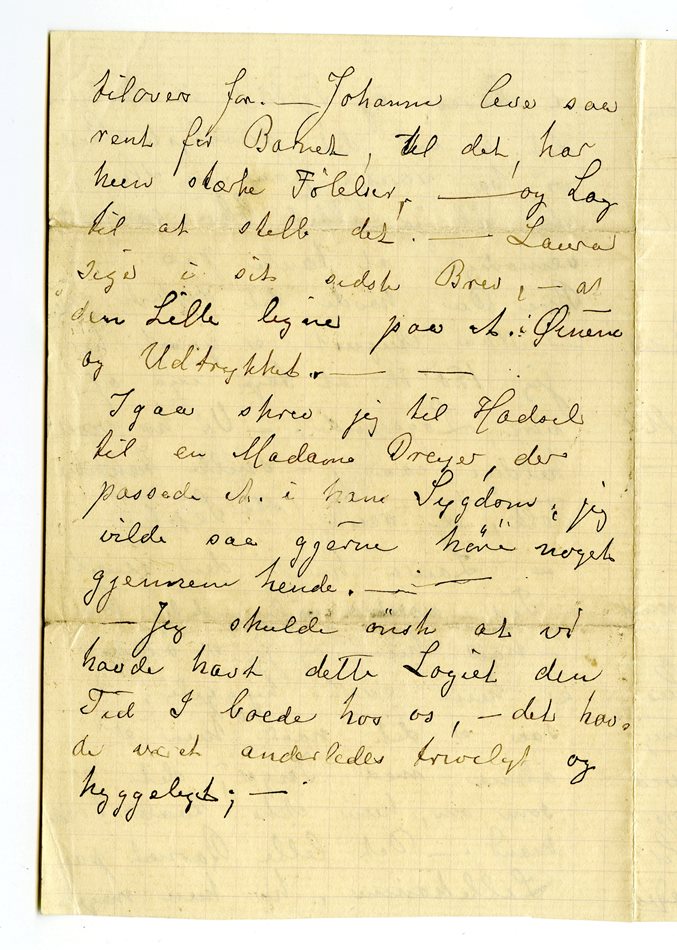 tilovers for. — Johanne leve saa
rent for Barnet, til det, har
hun stærke Følelser, — og Lag
til at stelle det. — Laura
sige i sit sidste Brev, — at
den Lille ligne paa A. i Øinene
og Udtrykket. — —
Igaa skrev jeg til Hadsel
til en Madame Dreyer, der
passede A. i hans Sygdom; jeg
vilde saa gjerne høre noget
gjennem hende. — —
— Jeg skulde ønsk at vi
havde havt dette Logiet den
Tid I boede hos os, — det hav-
de været anderledes triveligt og
hyggeligt; —